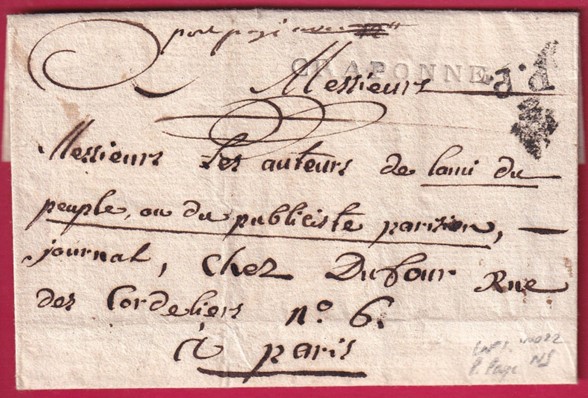 port payé
CRAPONNE
P.P.
Messieurs
Messieurs Les auteurs de lami du
peuple, ou du publiciste parisien,
journal, chez Dufour Rue
des Cordeliers nº 6.
à paris